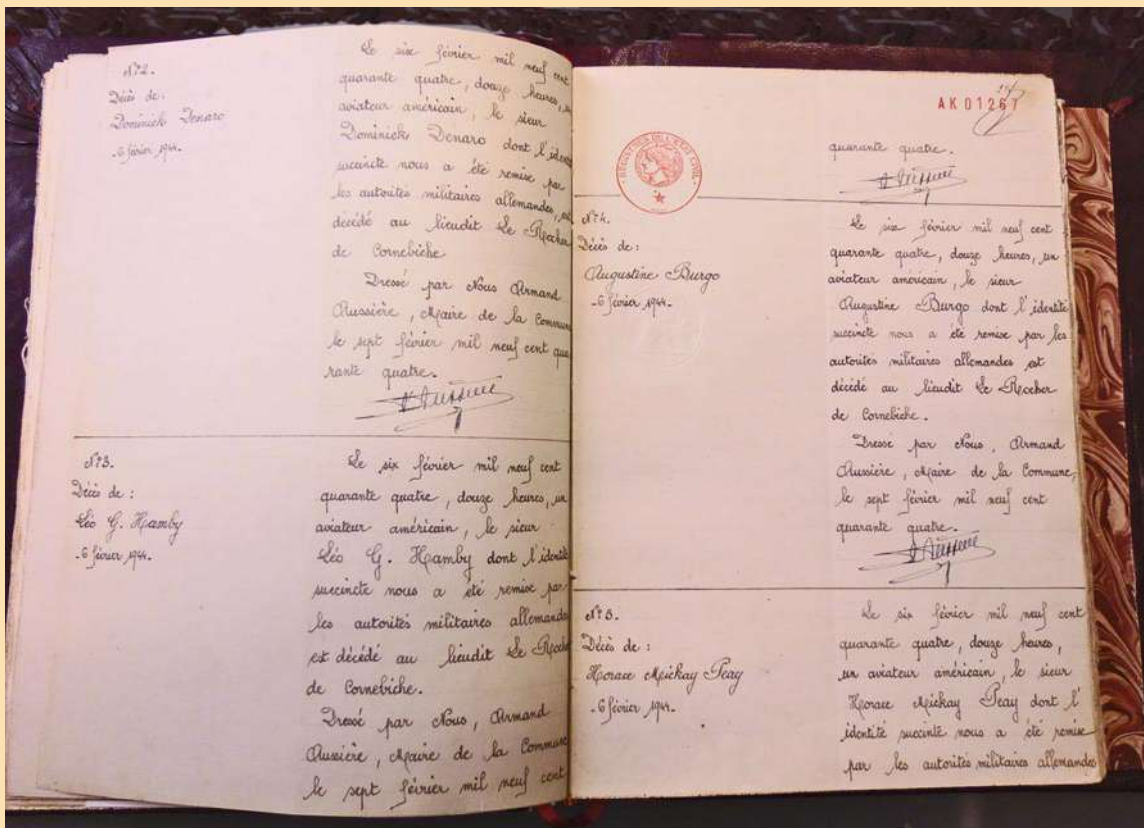 N°2.
Décès de:
Dominick Denaro
_6 février 1944.
Le six février mil neuf cent
quarante quatre, douze heures, un
aviateur américain, le sieur
Dominick Denaro dont l'identité
succincte nous a été remise par
les autorités militaires allemandes, est
décédé au lieudit Le Rocher
de Cornebiche
Dressé par Nous Armand
Aussière, Maire de la Commune
le sept février mil neuf cent qua
rante quatre._
N°3.
Décès de :
Léo G. Hamby
_6 février 1944.
Le six février mil neuf cent
quarante quatre, douze heures, un
aviateur américain, le sieur
Léo G. Hamby dont l'identité
succincte nous a été remise par
les autorités militaires allemandes
est décédé au lieudit Le Rocher
de Cornebiche.
Dressé par Nous, Armand
Aussière, Maire de la Commune
le sept février mil neuf cent
AK 01267
quarante quatre.
N°4.
Décès de :
Augustine Burgo
_6 février 1944._
Le six février mil neuf cent
quarante quatre, douze heures, un
aviateur américain, le sieur
Augustine Burgo dont l'identité
succincte nous a été remise par les
autorités militaires allemandes est
décédé au lieudit Le Rocher
de Cornebiche.
Dressé par Nous, Armand
Aussière, Maire de la Commune,
le sept février mil neuf cent
quarante quatre._
N°5.
Décès de :
Horace Mickay Peay
_6 février 1944.
Le six février mil neuf cent
quarante quatre, douze heures,
un aviateur américain, le sieur
Horace Mickay Peay dont l'
identité succinte nous a été remise
par les autorités militaires allemandes